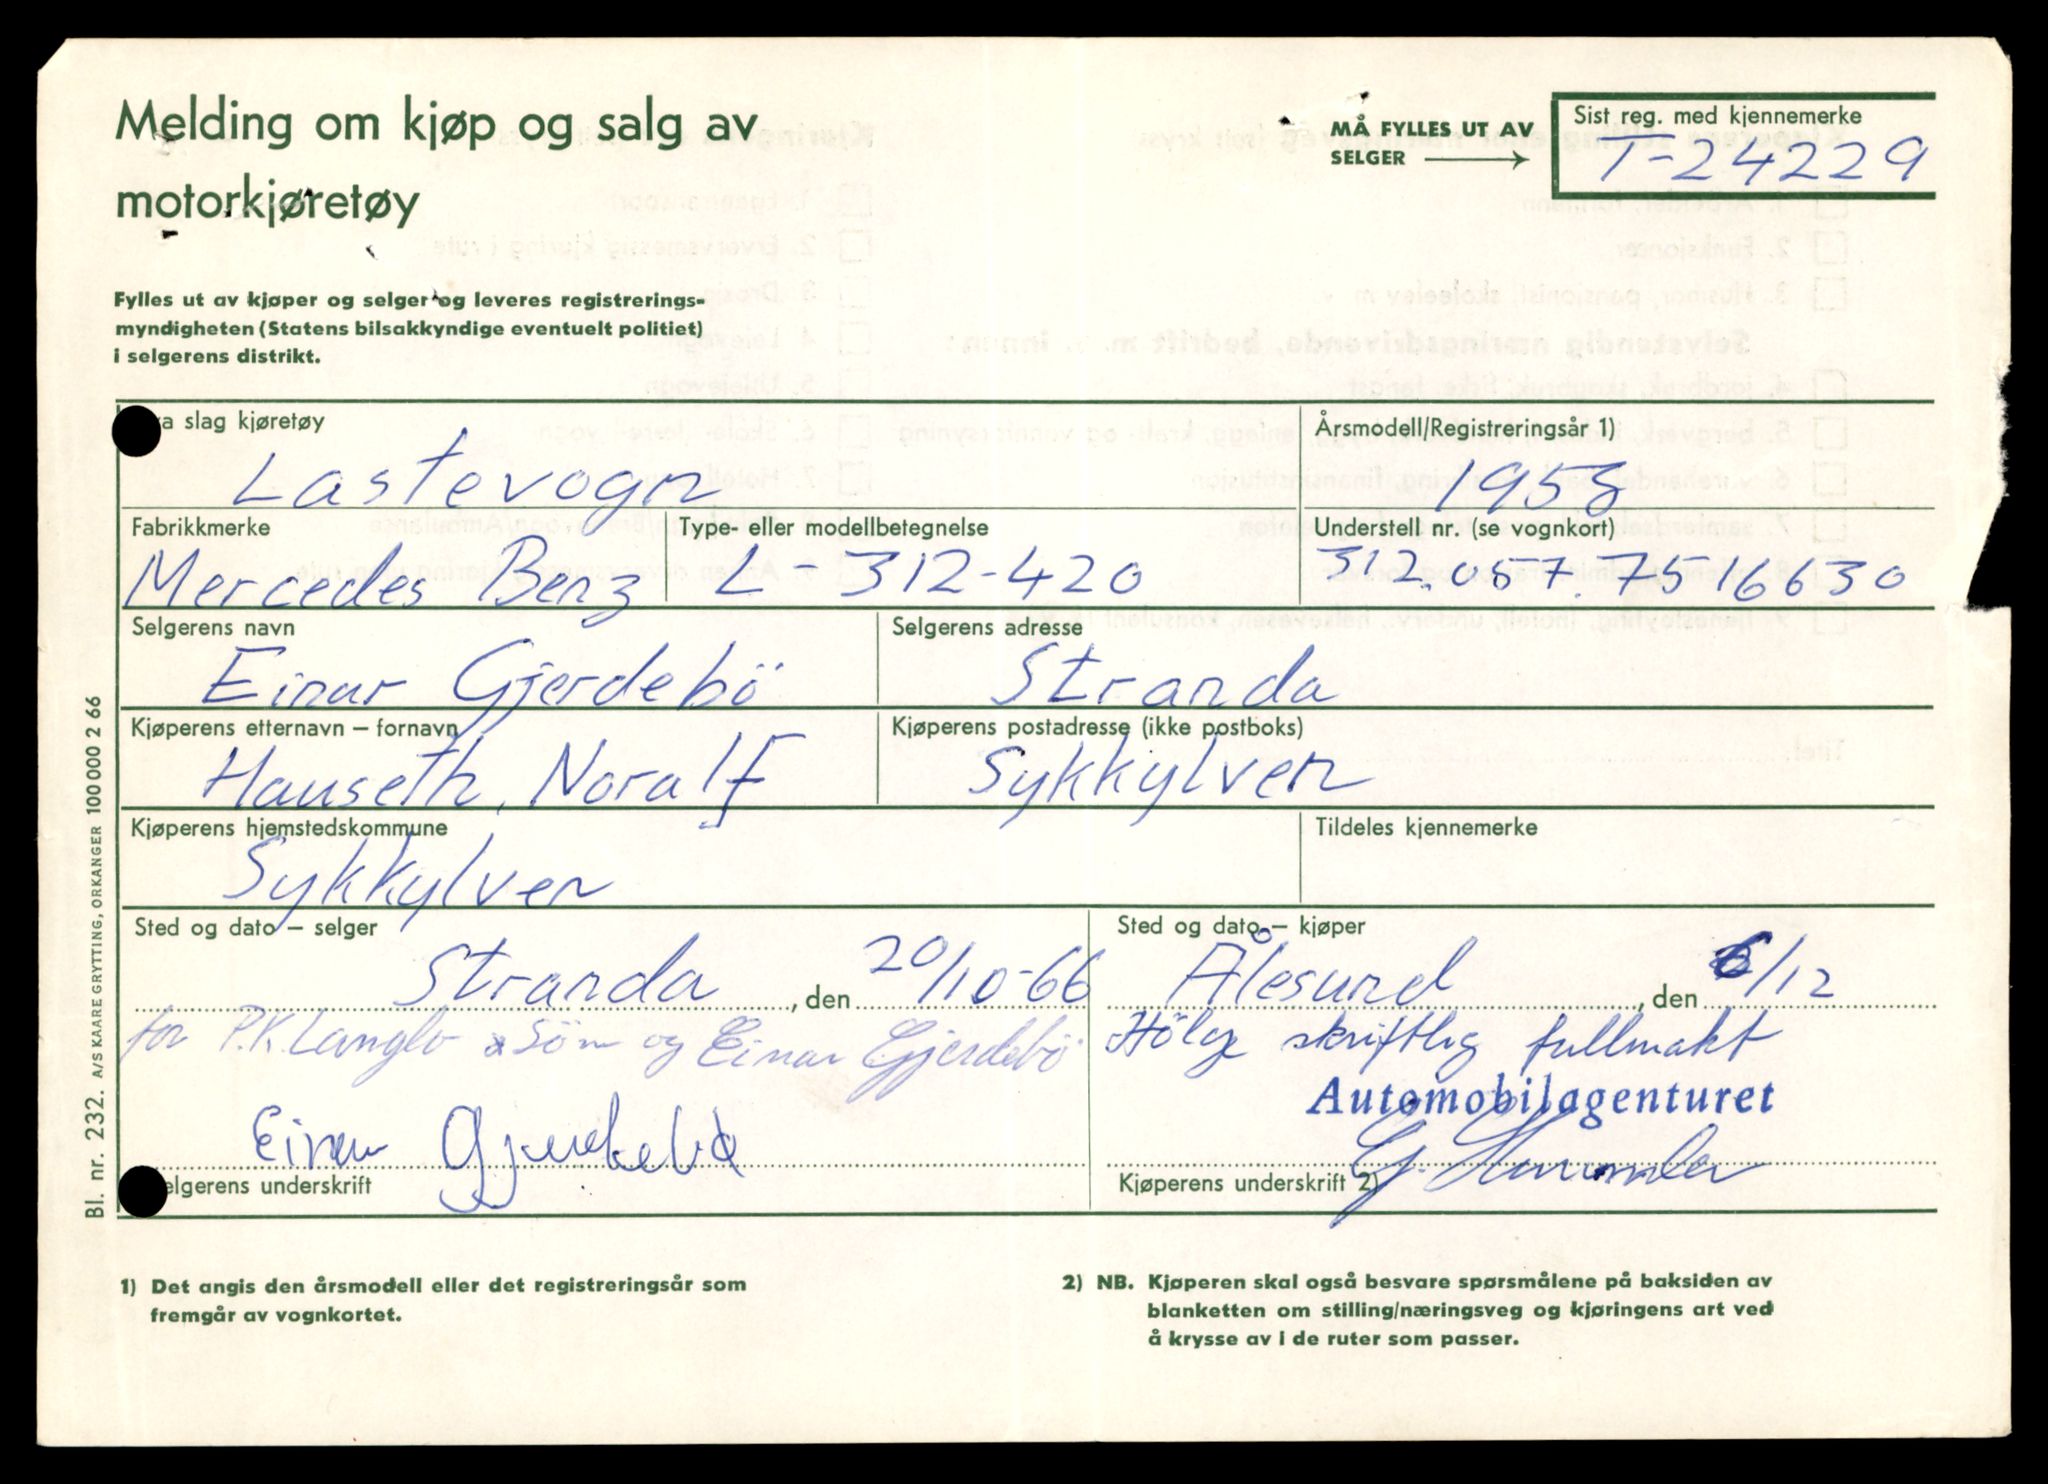 Melding om kjøp og salg av
motorkjøretøy
MÅ FYLLES UT AV
SELGER
Sist reg. med kjennemerke
T-24229
Fylles ut av kjøper og selger og leveres registrerings-
myndigheten (Statens bilsakkyndige eventuelt politiet)
i selgerens distrikt.
slag kjøretøy
Lastevogn
Årsmodell/Registreringsår 1)
1958
Fabrikkmerke
Mercedes Benz
Type- eller modellbetegnelse
L - 312-420
Understell nr. (se vognkort)
312.057.7516630
Selgerens navn
Einar Gjerdebö
Selgerens adresse
Stranda
Kjøperens etternavn – fornavn
Hauseth, Noralf
Kjøperens postadresse (ikke postboks)
Sykkylven
Kjøperens hjemstedskommune
Sykkylven
Tildeles kjennemerke
Sted og dato – selger
Stranda, den 20/10-66
for P.K. Langlo & Sön og Einar Gjerdebö
Einar Gjerdebö
elgerens underskrift
Sted og dato – kjøper
Ålesund, den 6/12
Hölge skriftlig fullmakt
Automobilagenturet
Kjøperens underskrift 2)
1) Det angis den årsmodell eller det registreringsår som
fremgår av vognkortet.
2) NB. Kjøperen skal også besvare spørsmålene på baksiden av
blanketten om stilling/næringsveg og kjøringens art ved
å krysse av i de ruter som passer.
Bl. nr. 232. A/S KAARE GRYTTING, ORKANGER 100 000 2 66